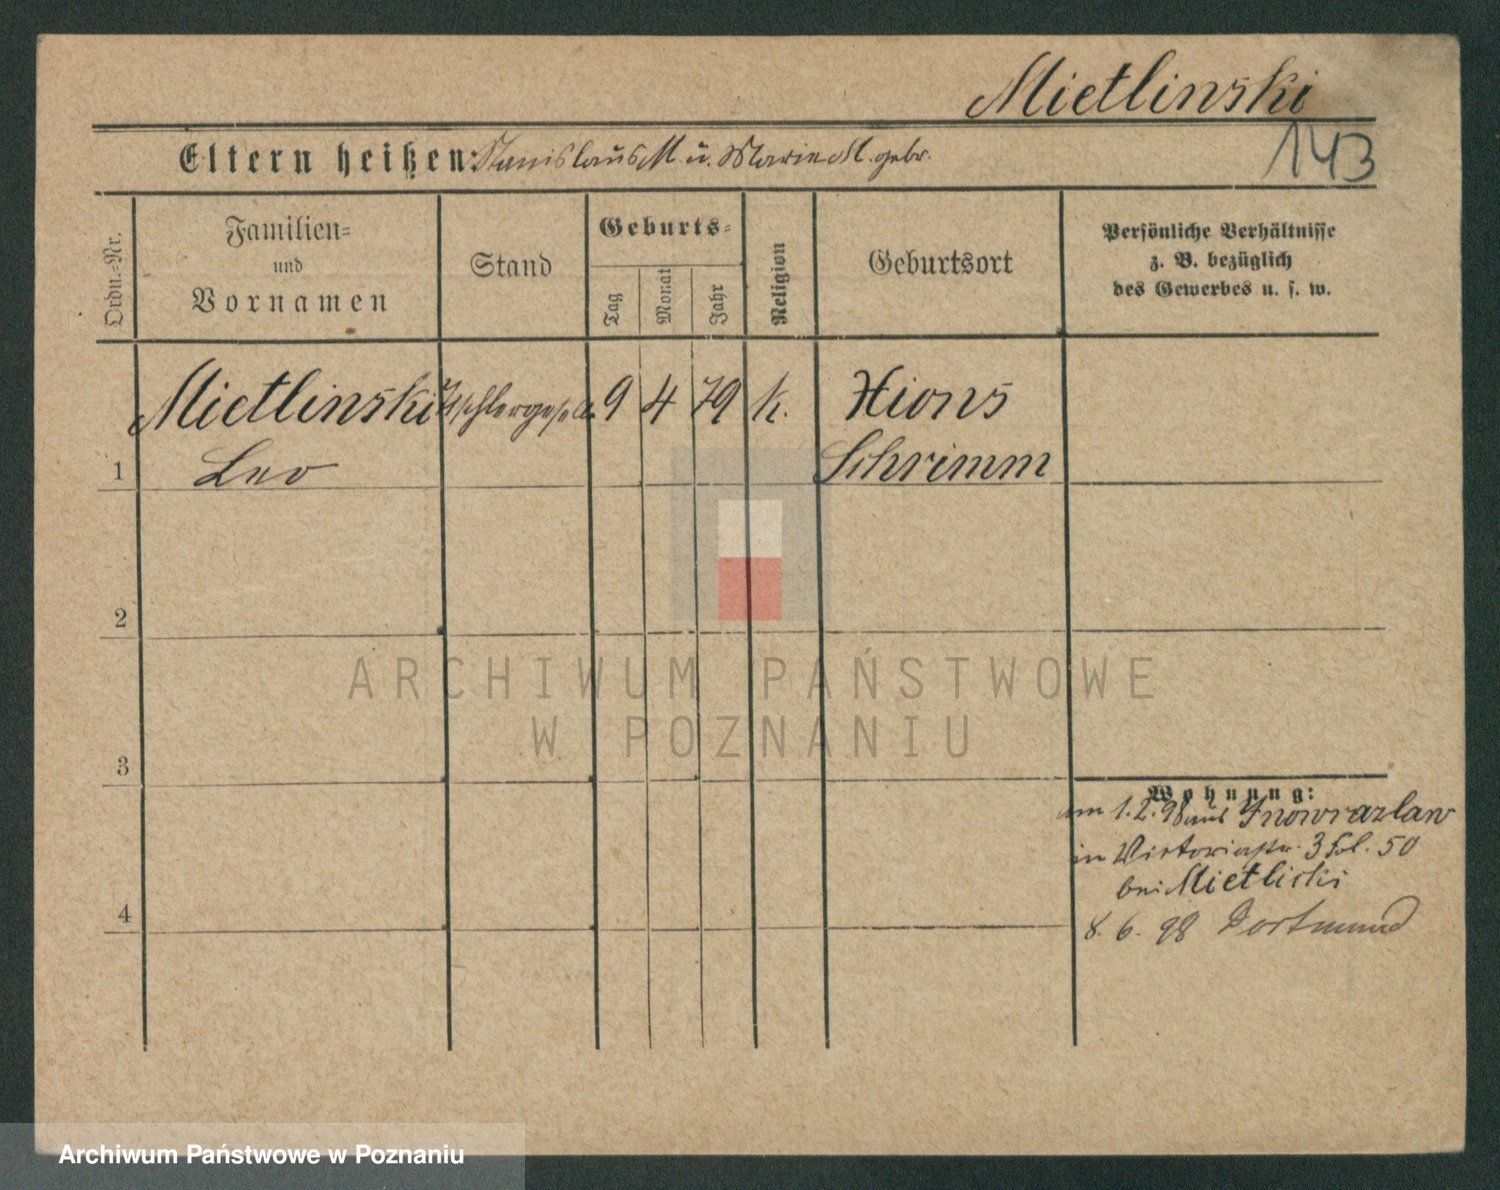 Mietlinski
143
Eltern heißen: Stanislaus M. u. Marie M. gebr.
Ordn.=Nr.
Familien=
und
Vornamen
Stand
Geburts=
Tag
Monat
Jahr
Religion
Geburtsort
Persönliche Verhältnisse
z. B. bezüglich
des Gewerbes u. s. w.
Mietlinski Tischlergesell 9 4 79 k. Xions
1 Leo Schrimm
2
3
4
Wohnung:
am 1.2.98 aus Inowrazlaw
in Victoriastr. 3 Fol. 50
bei Mietlicki
8. 6. 98 Dortmund
ARCHIWUM PAŃSTWOWE
W POZNANIU
Archiwum Państwowe w Poznaniu